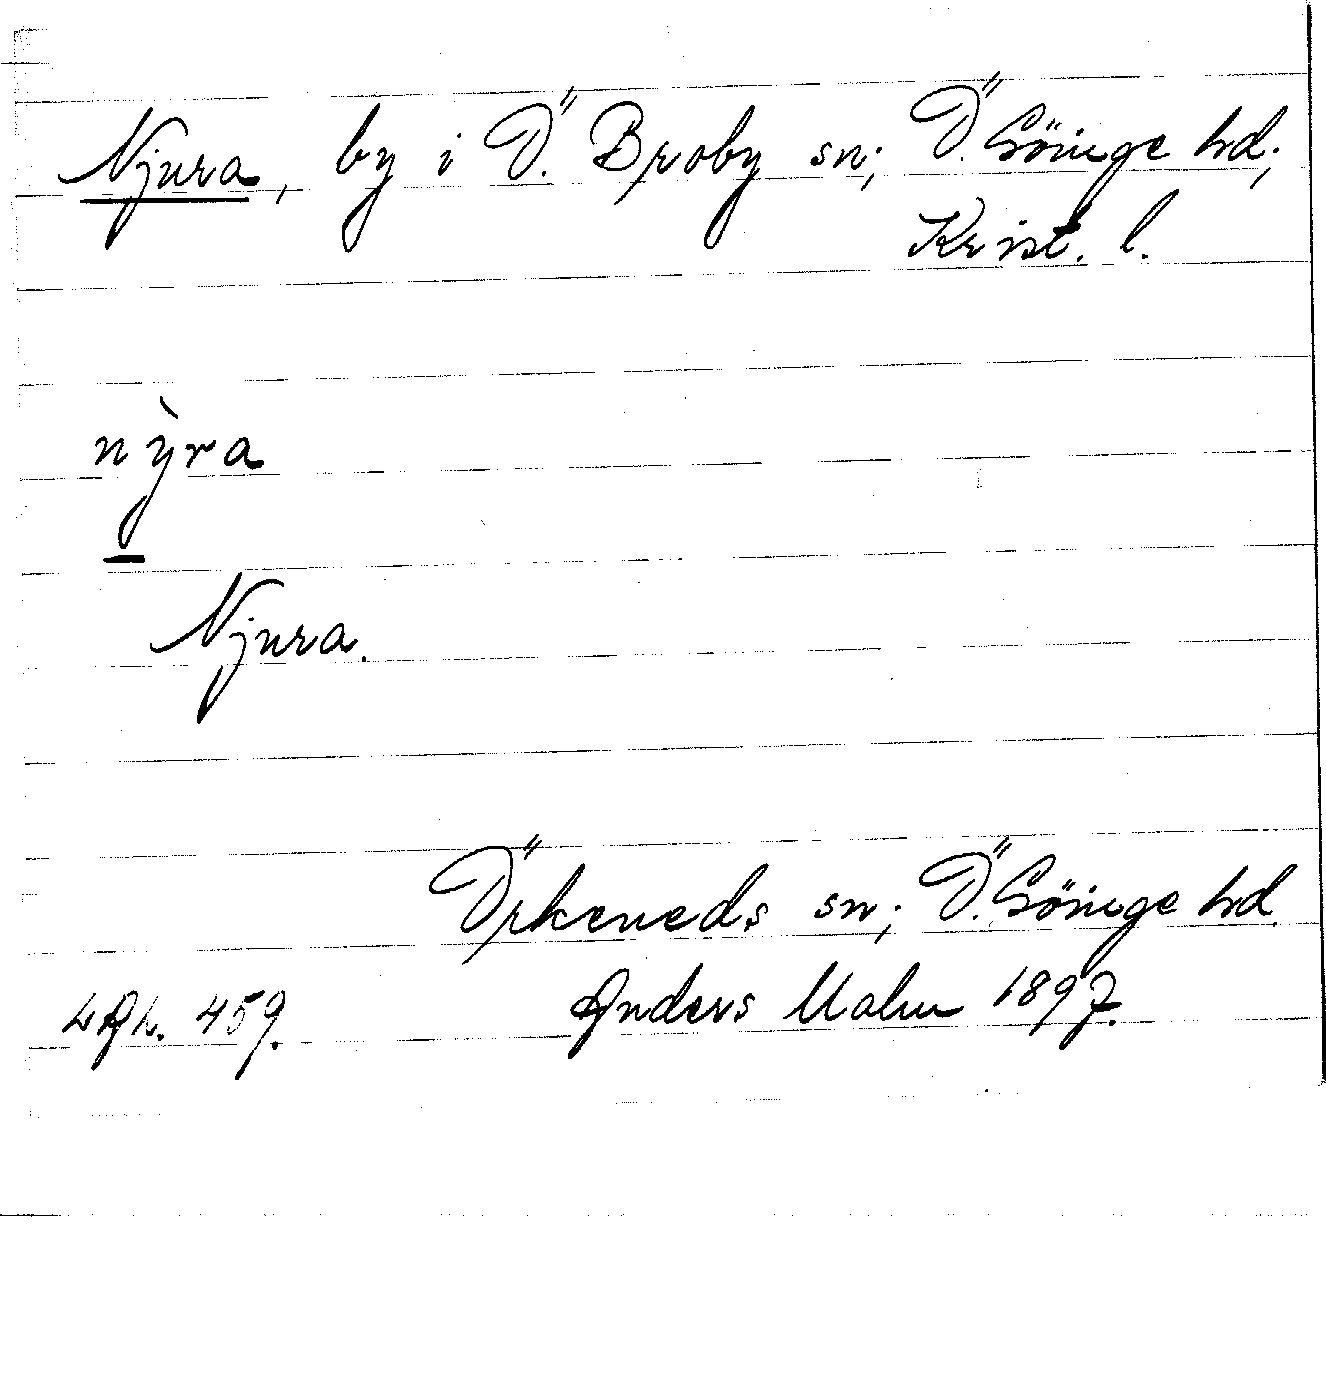 Njura, by i Ö. Broby sn; Ö. Göinge hd;
Krist. l.
nỳra
Njura.
Örkeneds sn; Ö. Göinge hd.
Anders Malm 1897.
459.